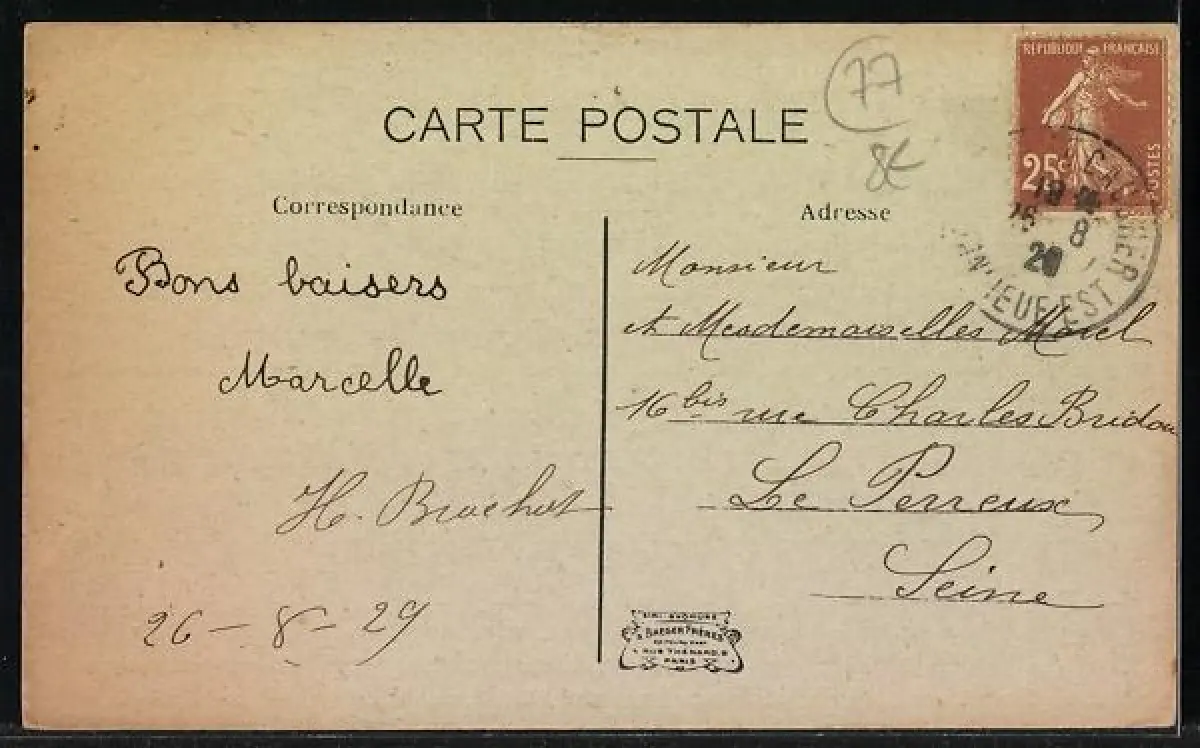 CARTE POSTALE
77
8€
RÉPUBLIQUE FRANÇAISE
25c
POSTES
8
BANLIEUE EST
Correspondance
Bons baisers
Marcelle
H. Brochot
26 - 8 - 29
Adresse
Monsieur
et Mesdemoiselles Morel
16 bis rue Charles Bridou
Le Perreux
Seine
BAEGER FRÈRES
RUE THÉNARD
PARIS